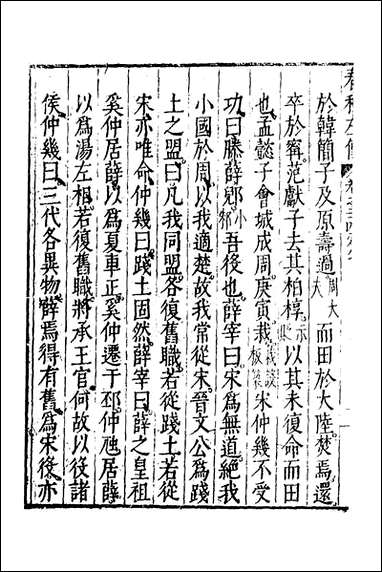 春秋左傳
於韓簡子及原壽過周大夫而田於大陸焚焉還
卒於甯范獻子去其柏椁示貶以其未復命而田
也孟懿子會城成周庚寅栽設板築宋仲幾不受
功曰滕薛郳小邾吾役也薛宰曰宋為無道絕我
小國於周以我適楚故我常從宋晉文公為踐
土之盟曰凡我同盟各復舊職若從踐土若從
宋亦唯命仲幾曰踐土固然薛宰曰薛之皇祖
奚仲居薛以為夏車正奚仲遷于邳仲虺居薛
以為湯左相若復舊職將承王官何故以役諸
侯仲幾曰三代各異物薛焉得有舊為宋役亦